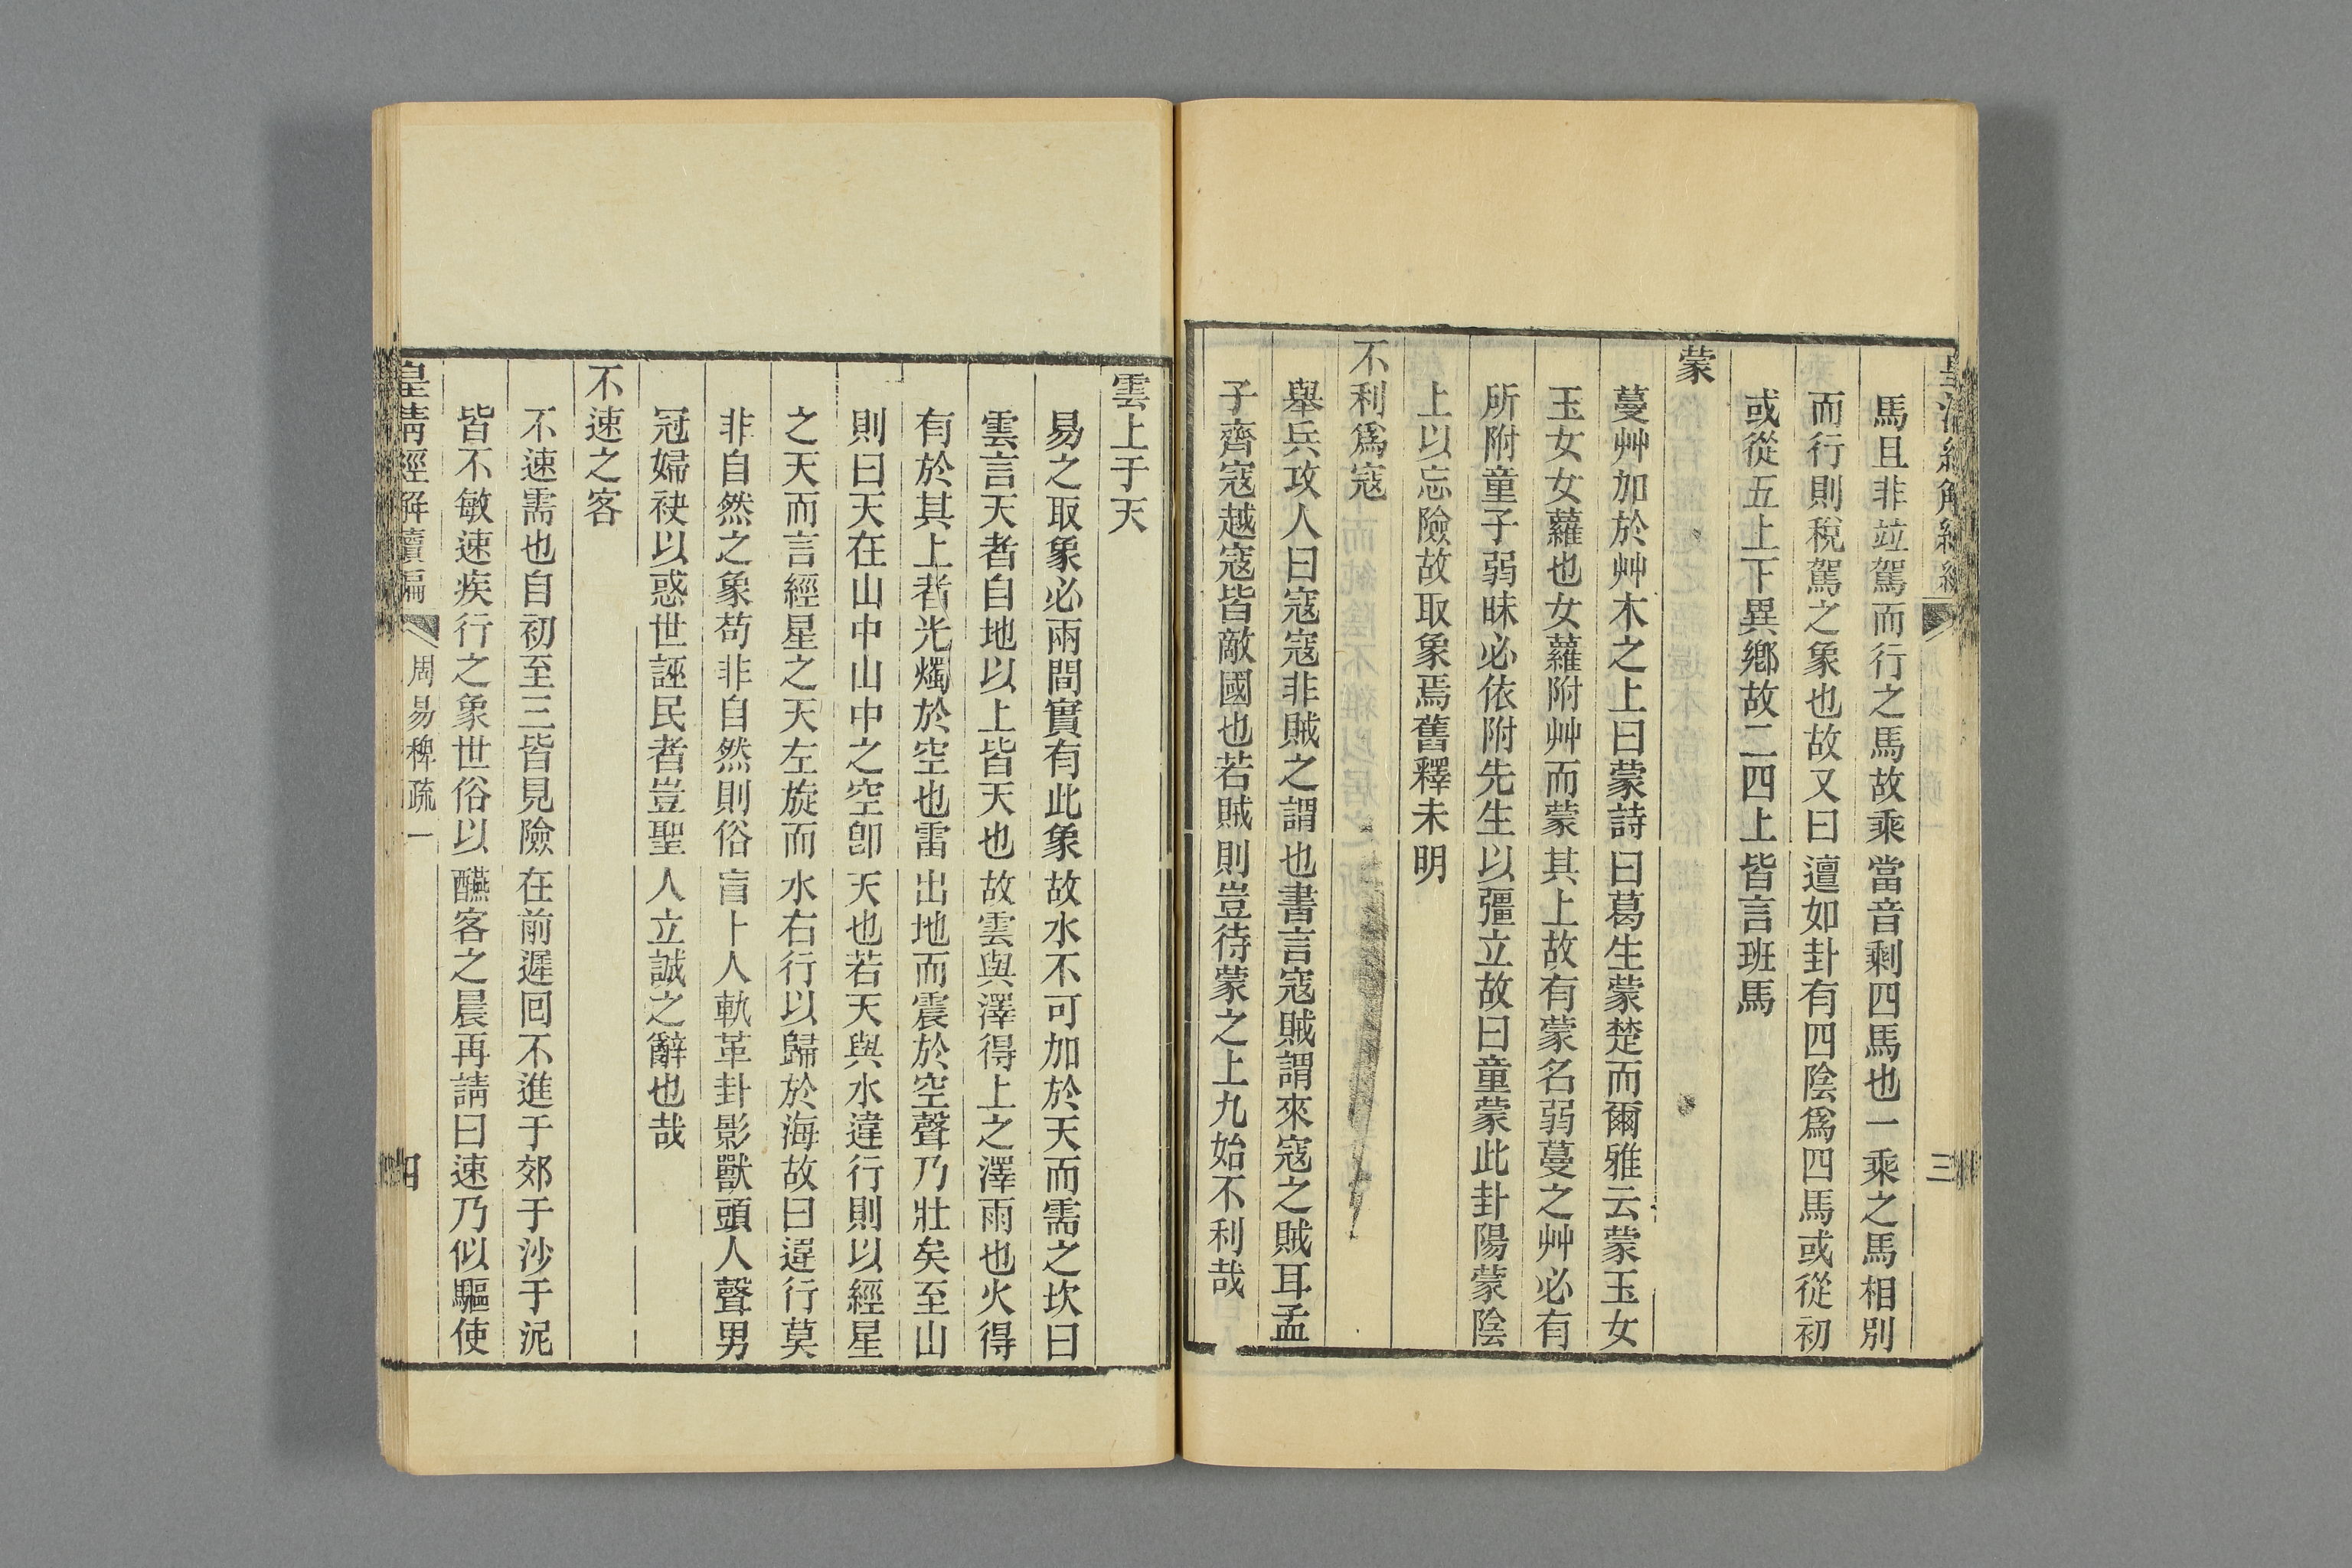 馬且非竝駕而行之馬故乘當音剩四馬也一乘之馬相別
而行則稅駕之象也故又曰邅如卦有四陰爲四馬或從初
或從五上下異鄉故二四上皆言班馬
蒙
蔓艸加於艸木之上曰蒙詩曰葛生蒙楚而爾雅云蒙玉女
玉女女蘿也女蘿附艸而蒙其上故有蒙名弱蔓之艸必有
所附童子弱昧必依附先生以彊立故曰童蒙此卦陽蒙陰
上以忘險故取象焉舊釋未明
不利爲寇
舉兵攻人曰寇寇非賊之謂也書言寇賊謂來寇之賊耳孟
子齊寇越寇皆敵國也若賊則豈待蒙之上九始不利哉
三
雲上于天
易之取象必兩間實有此象故水不可加於天而需之坎曰
雲言天者自地以上皆天也故雲與澤得上之澤雨也火得
有於其上者光燭於空也雷出地而震於空聲乃壯矣至山
則曰天在山中山中之空卽天也若天與水違行則以經星
之天而言經星之天左旋而水右行以歸於海故曰違行莫
非自然之象苟非自然則俗盲卜人軌革卦影獸頭人聲男
冠婦袂以惑世誣民者豈聖人立誠之辭也哉
不速之客
不速需也自初至三皆見險在前遲回不進于郊于沙于泥
皆不敏速疾行之象世俗以醼客之晨再請曰速乃似驅使
皇淸經解續編 周易稗疏一 四